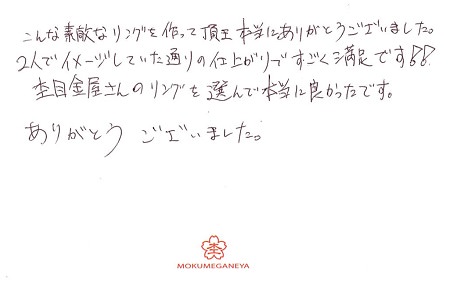 こんな素敵なリングを作って頂き本当にありがとうございました。
2人でイメージしていた通りの仕上がりですごく満足です!!
杢目金屋さんのリングを選んで本当に良かったです。
ありがとう ございました。
杢
MOKUMEGANEYA